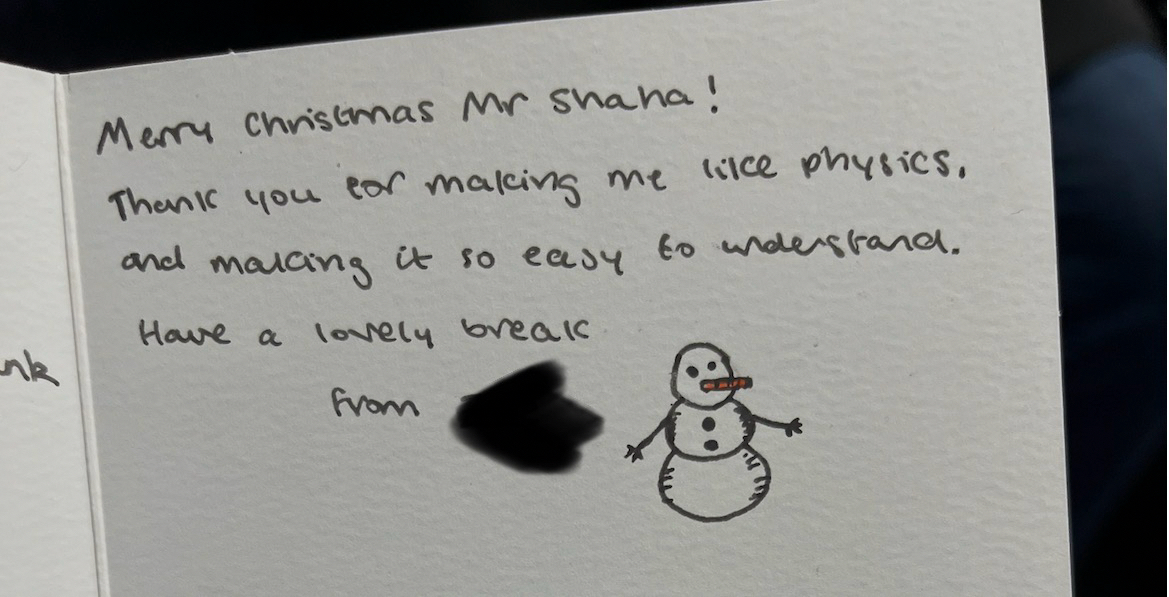 Merry Christmas Mr Shaha!
Thank you for making me like physics,
and making it so easy to understand.
Have a lovely break
from
nk